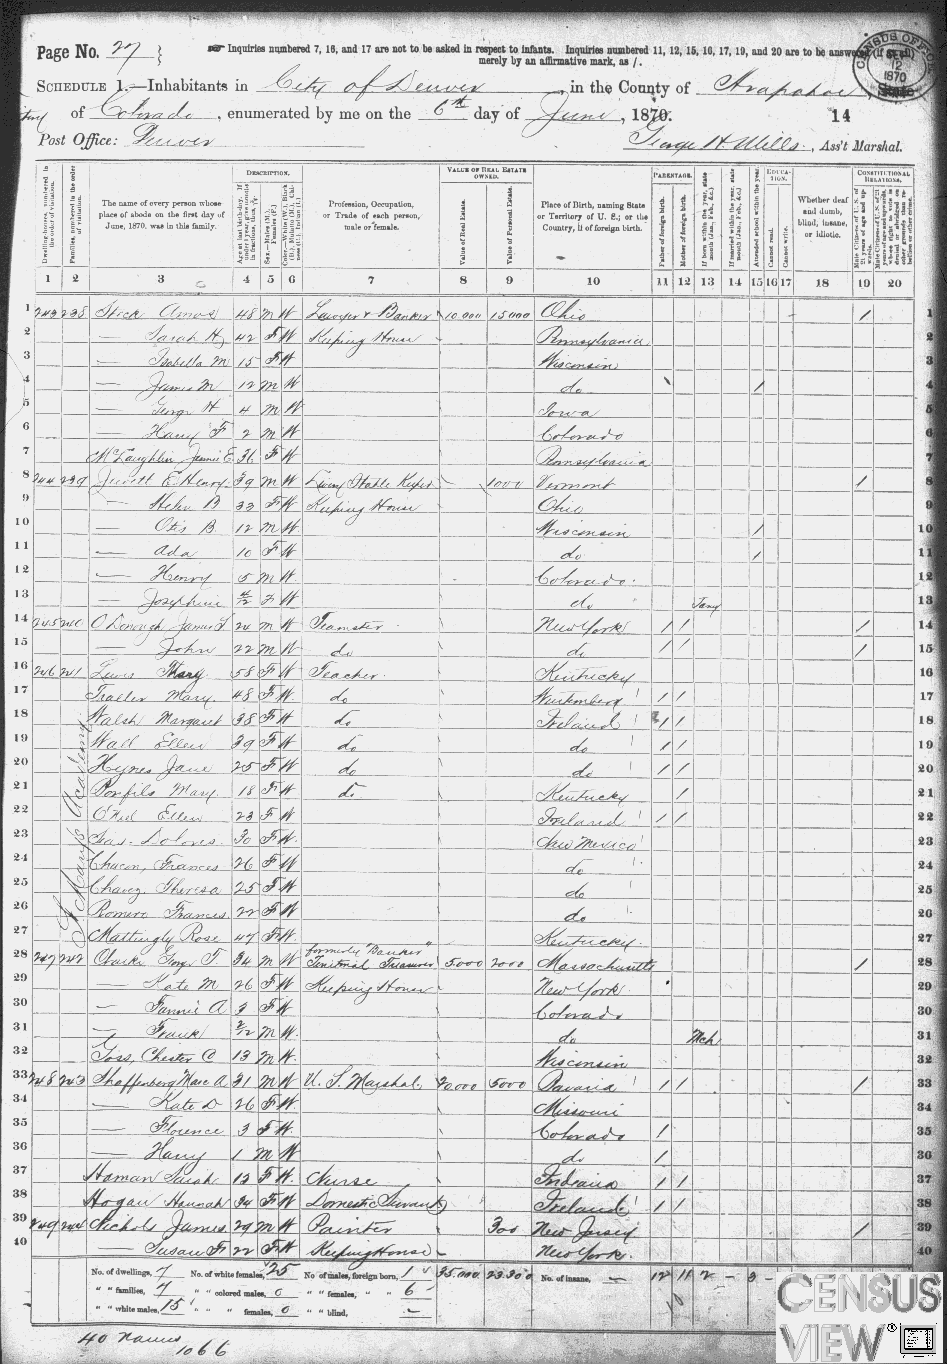 Page No. 27
☞ Inquiries numbered 7, 16, and 17 are not to be asked in respect to infants. Inquiries numbered 11, 12, 15, 16, 17, 19, and 20 are to be answered (if at all)
merely by an affirmative mark, as /.
CENSUS OFFICE
12
1870
SCHEDULE 1.—Inhabitants in City of Denver, in the County of Arapahoe, State
of Colorado, enumerated by me on the 6th day of June, 1870. 14
Post Office: Denver George H. Mills, Ass't Marshal.
Dwelling-houses, numbered in the order of visitation.
Families, numbered in the order of visitation.
The name of every person whose place of abode on the first day of June, 1870, was in this family.
DESCRIPTION.
Profession, Occupation, or Trade of each person, male or female.
VALUE OF REAL ESTATE OWNED.
Value of Real Estate.
Value of Personal Estate.
Place of Birth, naming State or Territory of U. S.; or the Country, if of foreign birth.
PARENTAGE.
Father of foreign birth.
Mother of foreign birth.
EDUCATION.
Attended school within the year.
Cannot read.
Cannot write.
Whether deaf and dumb, blind, insane, or idiotic.
CONSTITUTIONAL RELATIONS.
1 2 3 4 5 6 7 8 9 10 11 12 13 14 15 16 17 18 19 20
1 243 238 Steck Amos 48 M W Lawyer & Banker 10,000 15000 Ohio / 1
2 — Sarah H 42 F W Keeping House Pennsylvania 2
3 — Isabella M 15 F W Wisconsin 3
4 — James M 12 M W do / 4
5 — George H 4 M W Iowa 5
6 — Harry F 2 M W Colorado 6
7 McLaughlin Jennie E. 36 F W Pennsylvania 7
8 244 239 Jewett E Henry 39 M W Livery Stable Keeper — 1000 Vermont / 8
9 — Helen B 33 F W Keeping House Ohio 9
10 — Otis B 12 M W Wisconsin / 10
11 — Ada 10 F W do / 11
12 — Henry 5 M W Colorado 12
13 — Josephine F W do Jany 13
14 245 240 O Donough James 24 M W Teamster New York / / / 14
15 — John 22 M W do do / / / 15
16 246 241 Lewis Mary 58 F W Teacher Kentucky 16
17 Mary 48 F W do Wurtemberg / / 17
18 Walsh Margaret 38 F W do Ireland / / 18
19 Wall Ellen 39 F W do do / / 19
20 Hynes Jane 25 F W do do / / 20
21 Bonfils Mary 18 F W do Kentucky / 21
22 O'Neil Ellen 23 F W Ireland / / 22
23 Dolores 30 F W New Mexico 23
24 Chacon, Frances 26 F W do 24
25 Chavez Theresa 25 F W do 25
26 Romero Frances 22 F W do 26
27 Mattingly Rose 47 F W Kentucky 27
St Mary's Academy
formerly "Banker"
28 247 242 Clarke Geo. T. 34 M W Territorial Treasurer 5000 2000 Massachusetts / 28
29 — Kate M 26 F W Keeping House New York 29
30 — Fannie A 3 F W Colorado 30
31 — Frank 2/12 M W do Mch 31
32 Goss, Chester C 13 M W Wisconsin 32
33 248 243 Shaffenberg Marc A 31 M W U. S. Marshal 20,000 5000 Bavaria / / / 33
34 — Kate D 26 F W Missouri 34
35 — Florence 3 F W Colorado / 35
36 — Harry 1 M W do / 36
37 Haman Sarah 13 F W Nurse Indiana / / 37
38 Hogan Hannah 34 F W Domestic Servant Ireland / / 38
39 249 244 Nichols James 29 M W Painter 300 New Jersey / 39
40 — Susan F 22 F W Keeping House New York 40
No. of dwellings, 7 No. of white females, 25 No. of males, foreign born, 1 35,000 23,300 No. of insane, — 12 11 2 — 3 -
" " families, 7 " " colored males, 0 " " females, " " 6
" " white males, 15 " " " females, 0 " " blind, —
40 names
1066
CENSUS
VIEW®